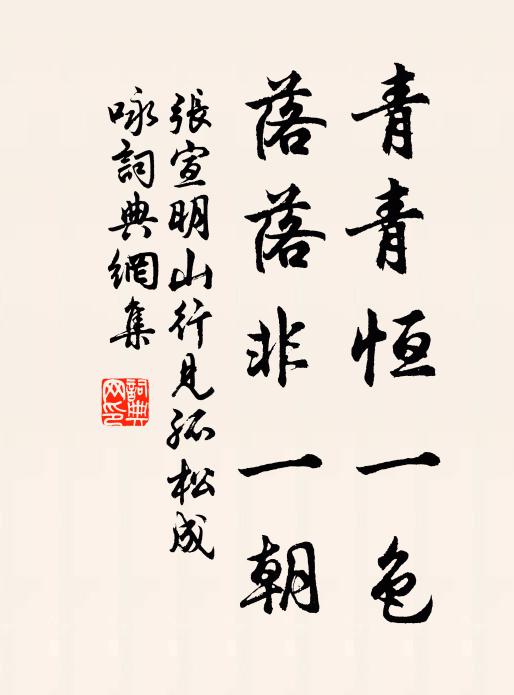 青青恒一色
落落非一朝
張宣明山行見孤松成
咏詞典網集
詞典
网印